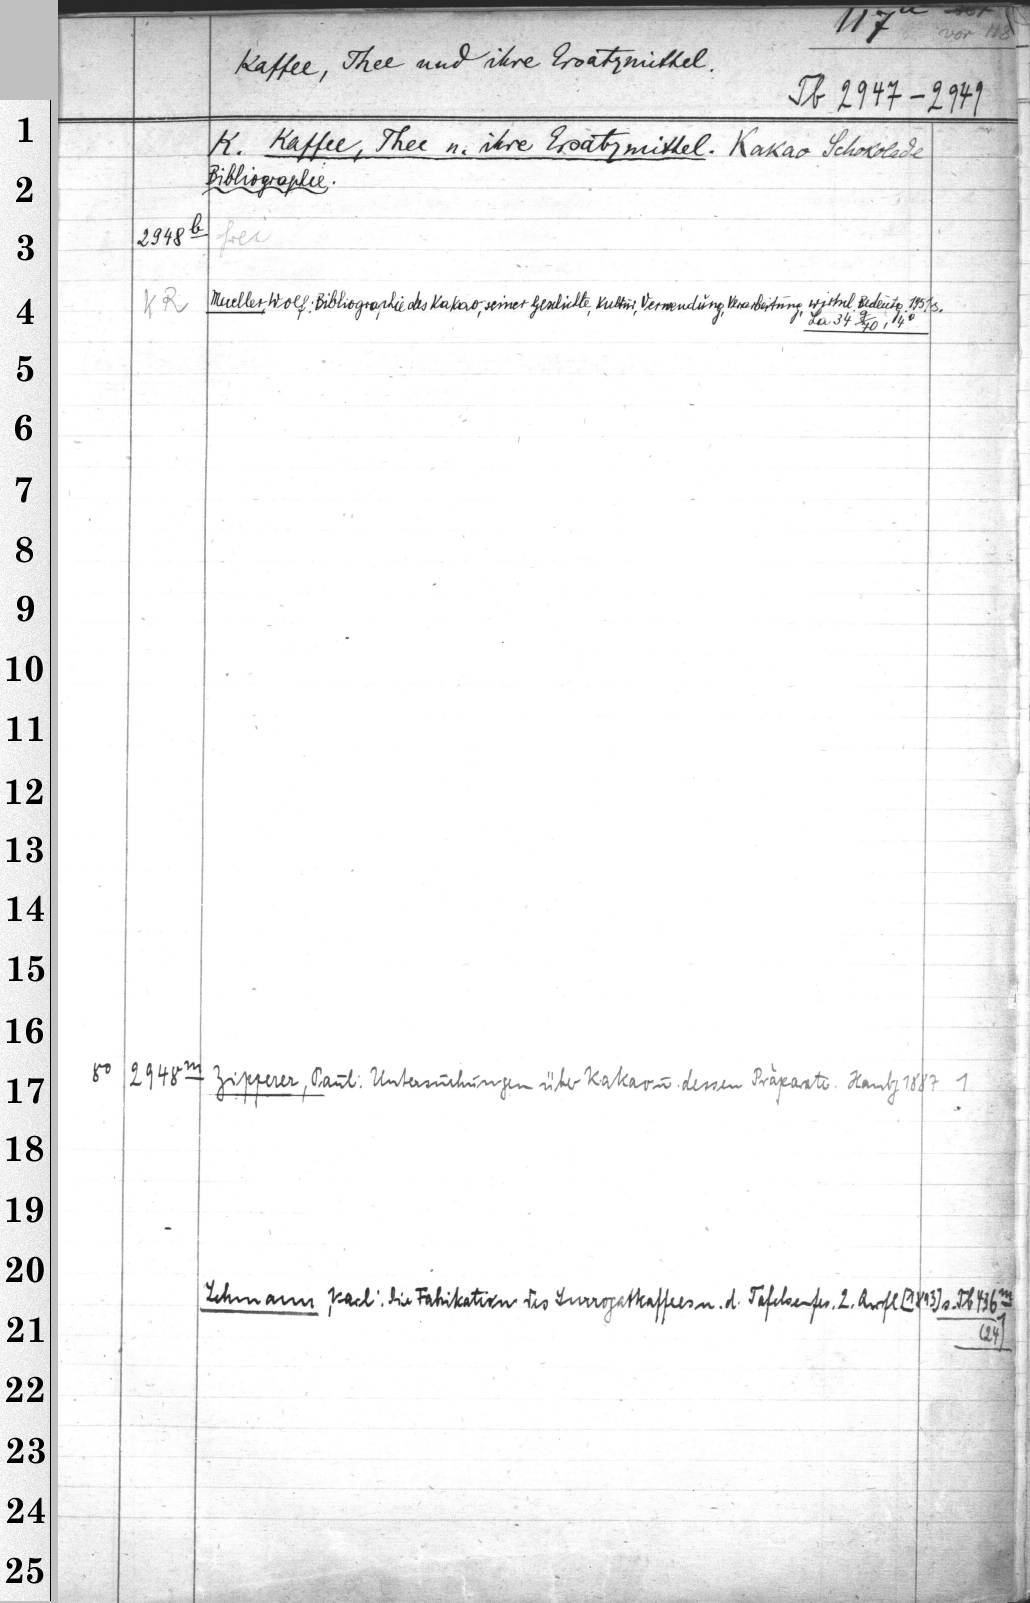 117a
vor 118
Kaffee, Thee und ihre Ersatzmittel.
Tb 2947-2949
1
K. Kaffee, Thee u. ihre Ersatzmittel. Kakao Schokolade
2
Bibliographie.
3
2948 b frei
4
KR Mueller, Wolf: Bibliographie des Kakao, seiner Geschichte, Kultur, Verwendung, Verarbeitung, wirtschl. Bedeutg. 1951 s.
La 34 40, 4°
5
6
7
8
9
10
11
12
13
14
15
16
17
8° 2948 m Zipperer, Paul: Untersuchungen über Kakao u. dessen Präparate. Hambg 1887 1
18
19
20
Lehmann, Karl: Die Fabrikation des Surrogatkaffees u. d. Tafelsenfes. 2. Aufl [1893] s. Tb 436 m
21
(24)
22
23
24
25